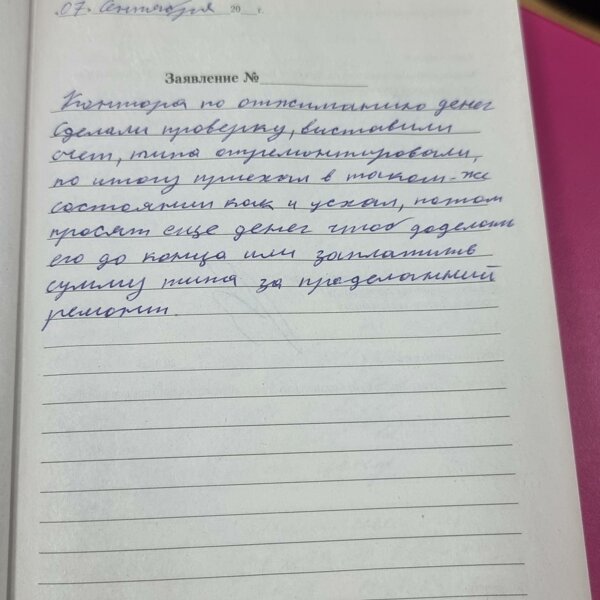 "07" Сентября 20__ г.
Заявление №
Контора по отжиманию денег
Сделали проверку, виставили
счет, типа отремонтировали,
по итогу приехал в таком-же
состоянии как и уехал, потом
просят еще денег чтоб доделать
его до конца или заплатить
сумму типа за проделанний
ремонт.